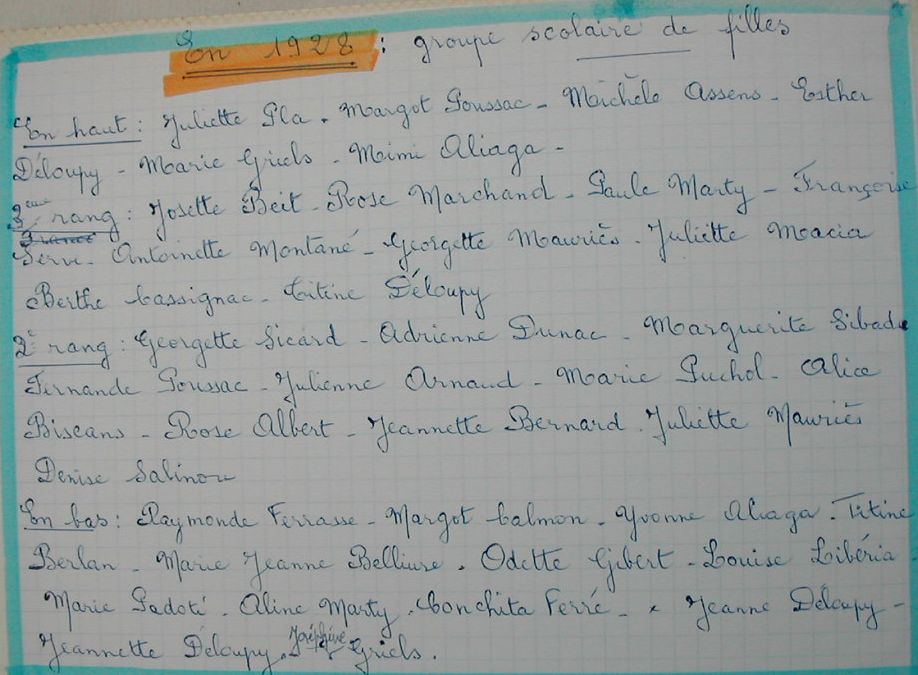 En 1928 : groupe scolaire de filles
En haut : Juliette Pla - Margot Poussac - Michèle Assens - Esther
Déloupy - Marie Griels - Mimi Aliaga -
3eme rang : Josette Beit - Rose Marchand - Paule Marty - Françoise
Serve - Antoinette Montané - Georgette Mauriès - Juliette Macia
Berthe Cassignac - Titine Déloupy
2e rang : Georgette Sicard - Adrienne Dunac - Marguerite Sibade
Fernande Poussac - Julienne Arnaud - Marie Puchol - Alice
Biscans - Rose Albert - Jeannette Bernard - Juliette Mauriès
Denise Salinou
En bas : Raymonde Ferrasse - Margot Calmon - Yvonne Aliaga - Titine
Berlan - Marie Jeanne Belliure - Odette Gibert - Louise Libéria
Marie Padoté - Aline Marty - Conchita Ferré - x Jeanne Déloupy -
Jeannette Déloupy - Joséphine Griels.